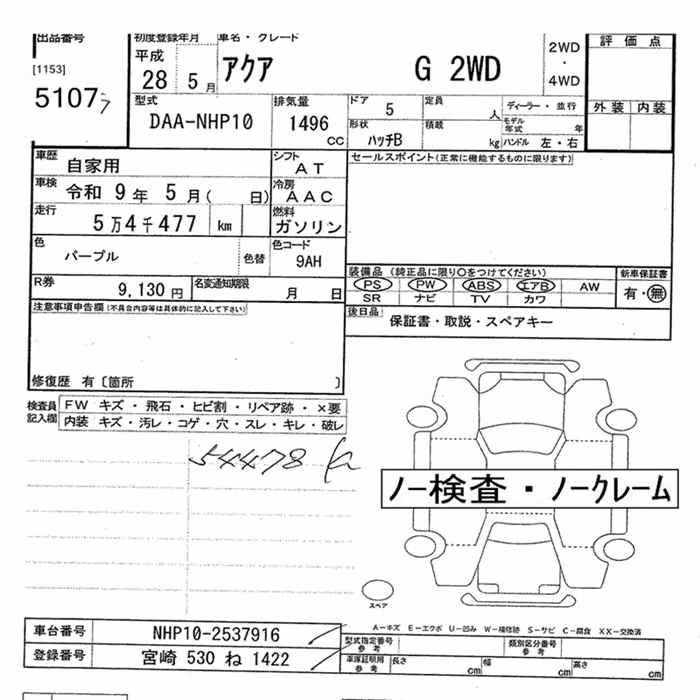 出品番号 初度登録年月 車名・グレード 評価点
[1153] 平成 28 5月 アクア G 2WD 2WD・4WD
5107 外装 内装
型式 排気量 ドア 5 定員 人 ディーラー・並行
DAA-NHP10 1496 cc 形状 ハッチB 積載 kg モデル年式 年
ハンドル 左・右
車歴 自家用 シフト AT セールスポイント(正常に機能するものに限ります)
車検 令和 9年 5月( 日) 冷房 AAC
走行 5万4千477 km 燃料 ガソリン
色 パープル 色替 色コード 9AH
装備品 (純正品に限り○をつけてください) 新車保証書
PS PW ABS エアB AW 有・無
SR ナビ TV カワ
R券 9,130円 名変通知期限 月 日
後日品 保証書・取説・スペアキー
注意事項申告欄(不具合内容等は具体的に記入して下さい)
修復歴 有〔箇所 〕
検査員記入欄 FW キズ・飛石・ヒビ割・リペア跡・×要
内装 キズ・汚レ・コゲ・穴・スレ・キレ・破レ
54478 K
ノー検査・ノークレーム
スペア
A-キズ E-エクボ U-凹み W-補修跡 S-サビ C-腐食 XX-交換済
車台番号 NHP10-2537916 型式指定番号 参考 類別区分番号 参考
登録番号 宮崎 530 ね 1422 車庫証明用 参考 長さ cm 幅 cm 高さ cm